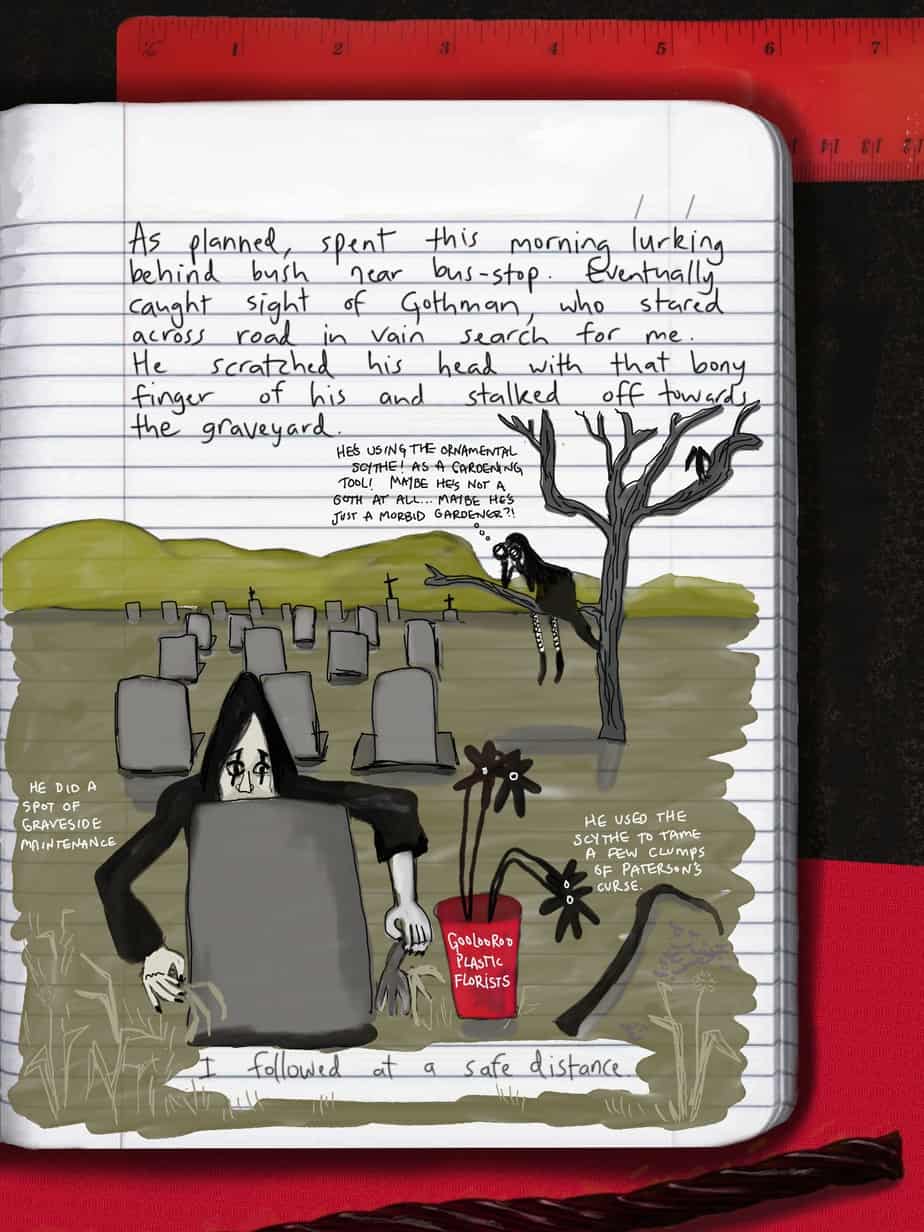 1 2 3 4 5 6 7
12 13 14
As planned, spent this morning lurking
behind bush near bus-stop. Eventually
caught sight of Gothman, who stared
across road in vain search for me.
He scratched his head with that bony
finger of his and stalked off towards
the graveyard.
HE'S USING THE ORNAMENTAL
SCYTHE! AS A GARDENING
TOOL! MAYBE HE'S NOT A
GOTH AT ALL... MAYBE HE'S
JUST A MORBID GARDENER?!
HE DID A
SPOT OF
GRAVESIDE
MAINTENANCE
HE USED THE
SCYTHE TO TAME
A FEW CLUMPS
OF PATERSON'S
CURSE.
GOOLOOROO
PLASTIC
FLORISTS
I followed at a safe distance.